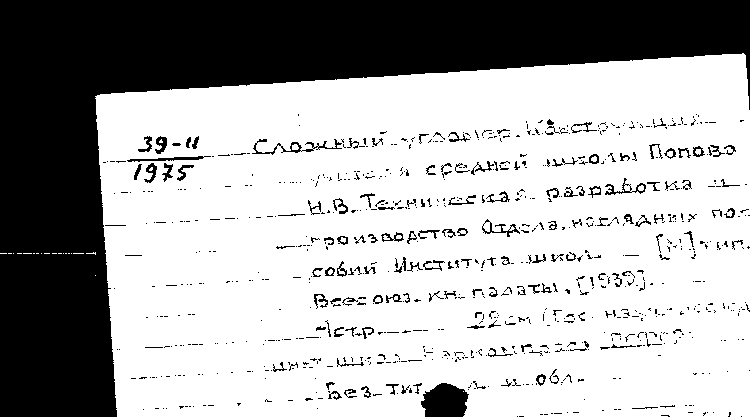 39-11
1975
Сложный угломер. Конструкция
учителя средней школы Попова
Н.В. Техническая разработка и
производство Отдела наглядных по-
собий Института школ. – [М] тип.
Всесоюз. кн. палаты, [1939].
4 стр. 22 см (Гос. науч.-
ин-т школ Наркомпроса РСФСР)
Без тит. л. и обл.